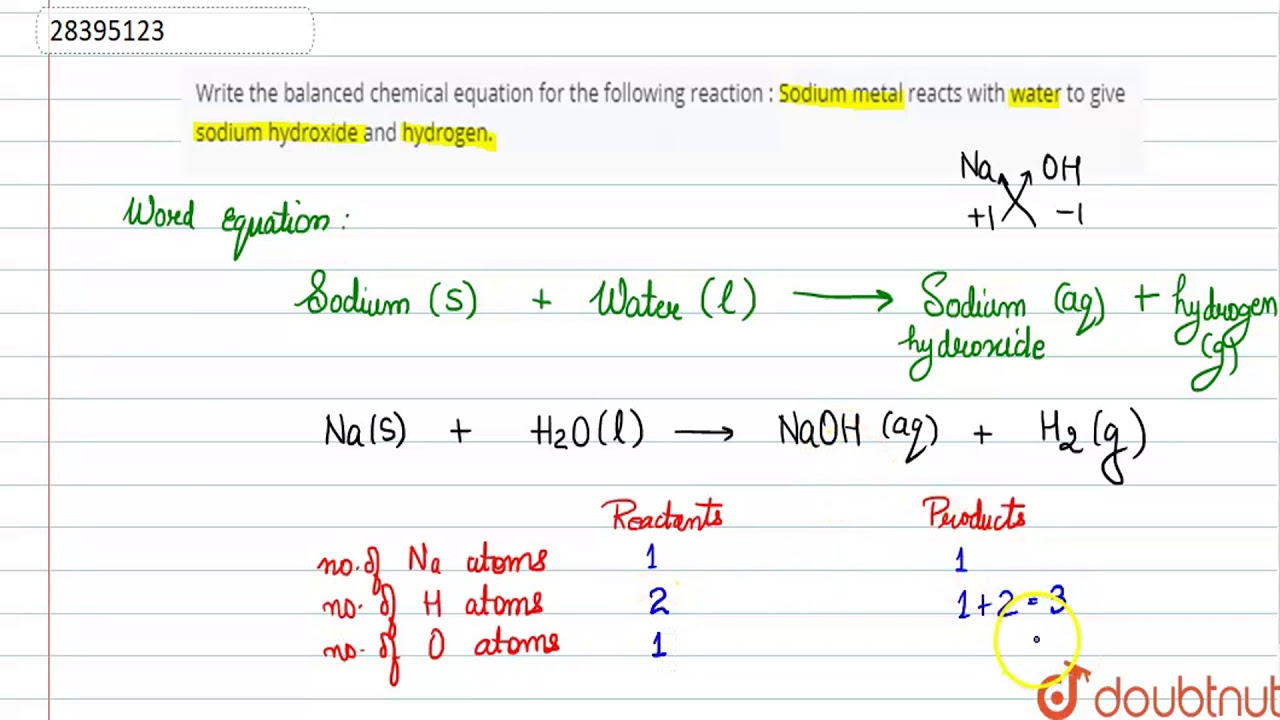 28395123
Write the balanced chemical equation for the following reaction : Sodium metal reacts with water to give
sodium hydroxide and hydrogen.
Na OH
+1 -1
Word Equation :
Sodium (s) + Water (l) → Sodium (aq) + hydrogen
hydroxide (g)
Na(s) + H2O(l) → NaOH (aq) + H2(g)
Reactants Products
no. of Na atoms 1 1
no. of H atoms 2 1+2=3
no. of O atoms 1
doubtnut